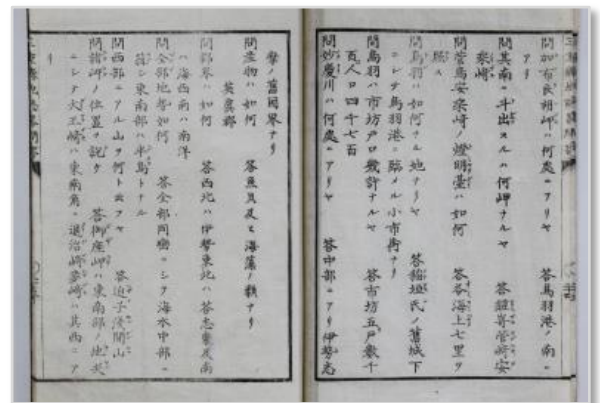 問加布良胡岬ハ何處ニアリヤ 答鳥羽港ノ南ニ
アリ
問其南ニ斗出スルハ何岬ナルヤ 答鎧﨑菅﨑安
乘崎
問菅島安乘崎ノ燈明臺ハ如何 答各海上七里ヲ
照ス
問鳥羽ハ如何ナル地ナリヤ 答稲垣氏ノ舊城下
ニシテ鳥羽港ニ臨メル小市街ナリ
問鳥羽ハ市坊戸口幾許ナルヤ 答市坊五戸數千
百人口四千七百
問妙慶川ハ何處ニアリヤ 答中部ニアリ伊勢志
摩ノ舊國界ナリ
問産物ハ如何 答魚貝及ヒ海藻ノ類ナリ
英虞郡
問郡界ハ如何 答西北ハ伊勢東北ハ答志東及南
ハ海西南ハ南洋
問全部地勢如何 答全部同巒ニシテ海水中部ニ
シ東南部ハ半島トナル
問西部ニアル山ヲ何ト云フヤ 答迫子淺間山
問諸岬ノ位置ヲ說ケ 答御座岬ハ東南部ノ地尖
ニシテ大王崎ハ東南角
崎ハ其西ニア
リ